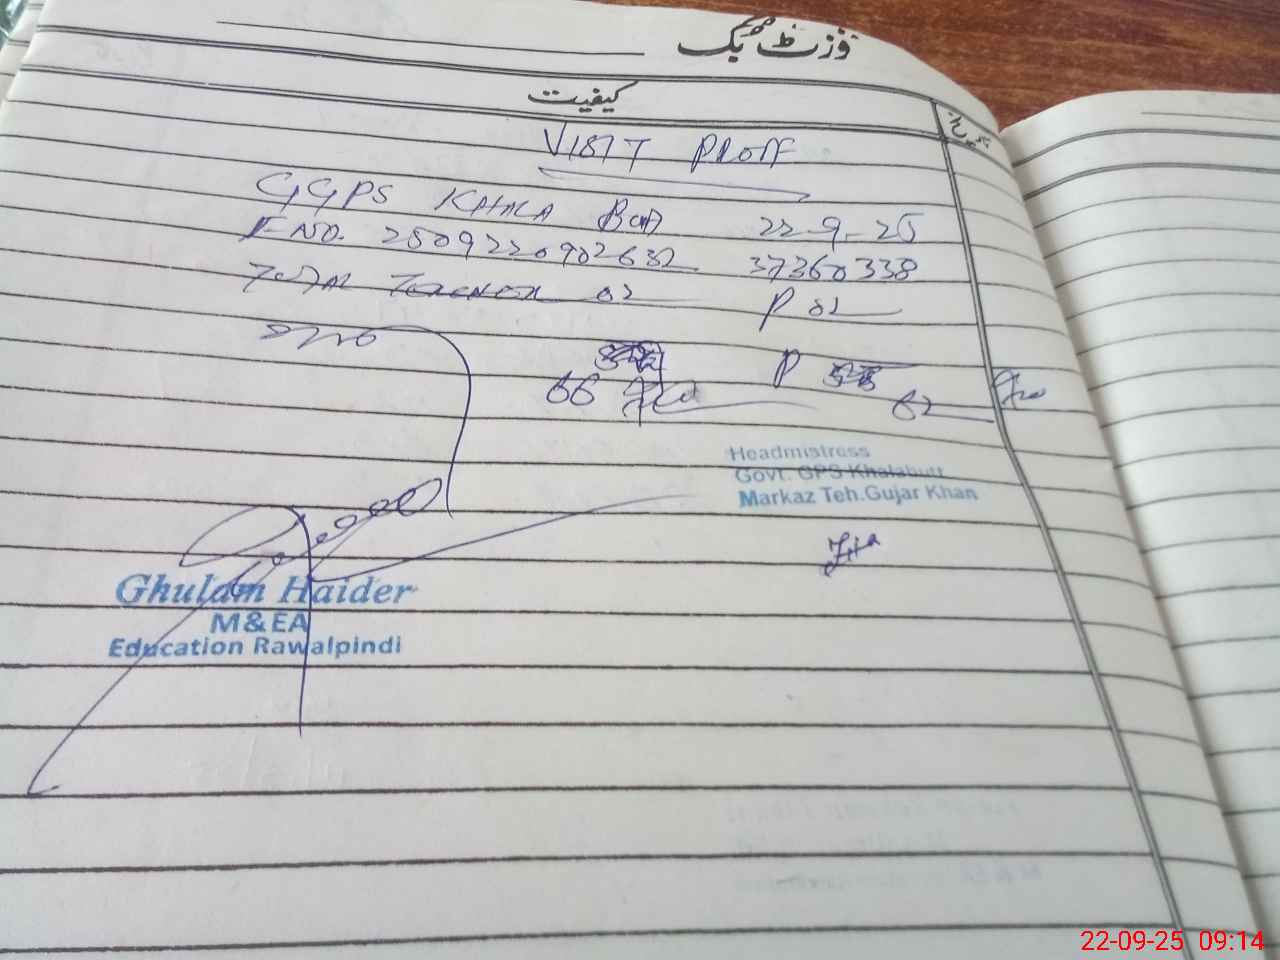 وزٹ بک
کیفیت
تاریخ
VISIT PROFF
GGPS KHALA BUTT 22-9-25
F-NO. 2509220902632 37360338
TOTAL TEACHER 02 P 02
66 P 62
Headmistress
Govt. GPS Khalabutt
Markaz Teh.Gujar Khan
Ghulam Haider
M&EA
Education Rawalpindi
22-09-25 09:14